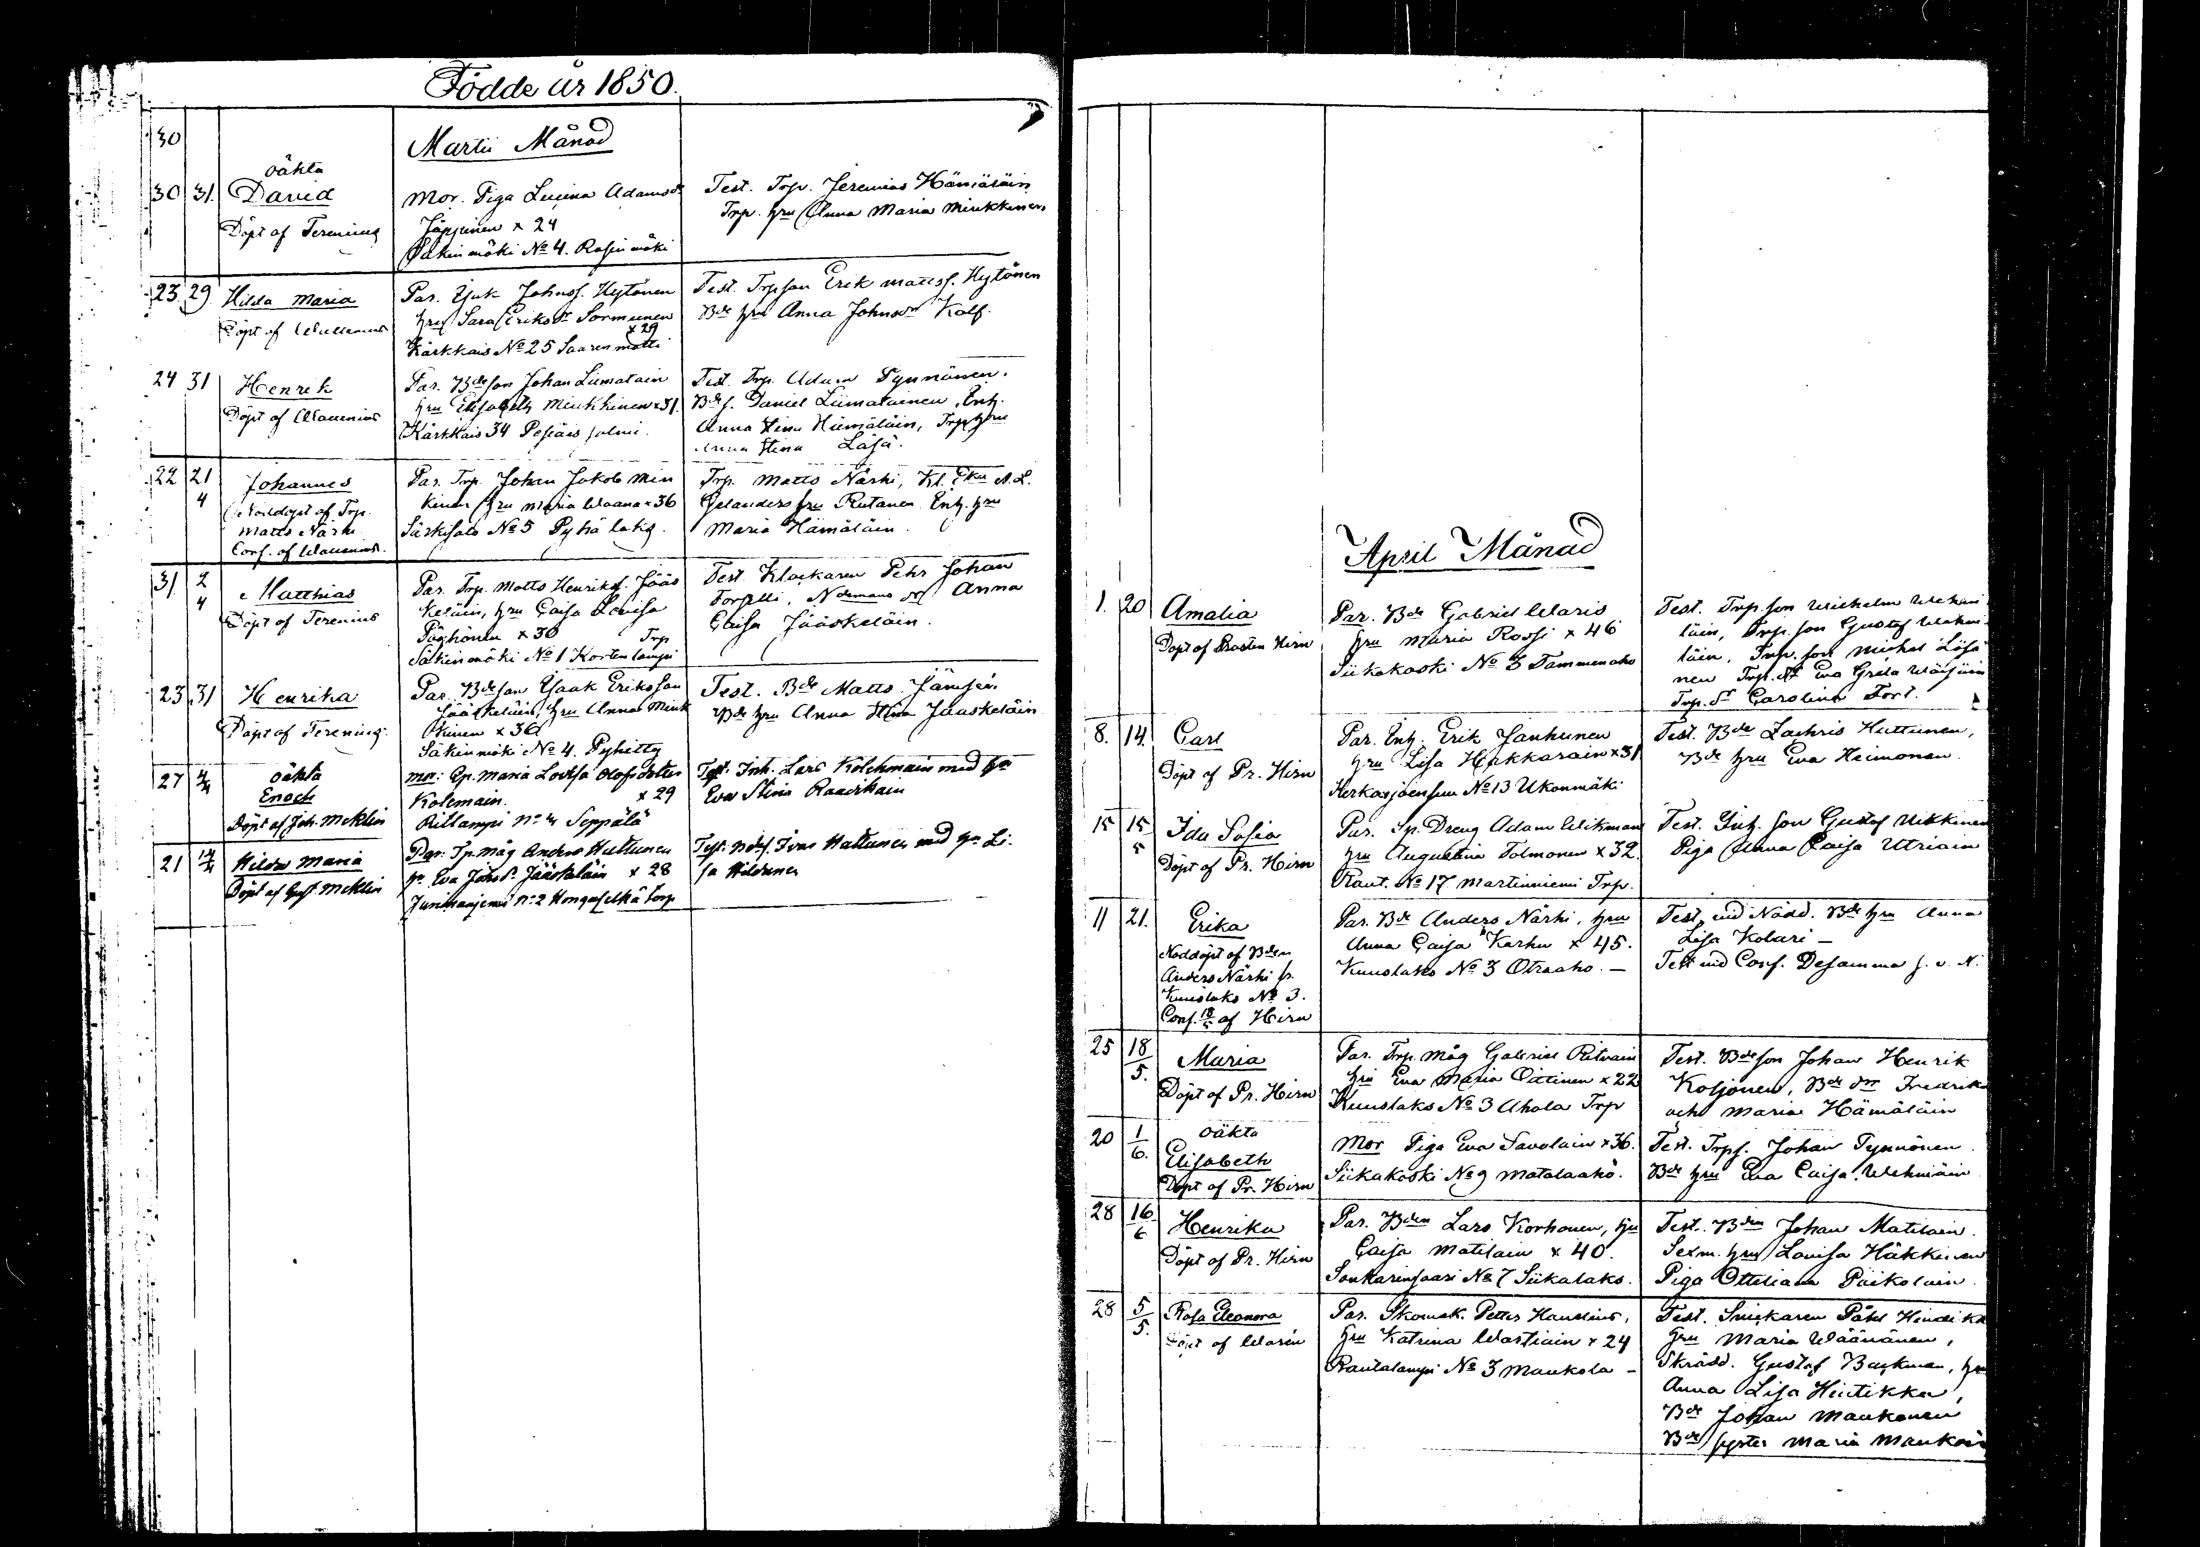 Födde år 1850.
30
Martii Månad
30 31. oäkta
David
Döpt af Terening
Mor. Piga Lucina Adamsdr
Jäppinen x 24
Säkinmäki No 4. Rasinmäki
Test. Trp. Jeremias Hämäläin
Trp. hru Anna Maria Minkkinen
23 29 Hilda Maria
Döpt af Wallenius
Par. Isak Johnss. Hytönen
hru Sara Eriksdr Sormunen
x 29
Kärkkais No 25 Saaren matti
Test. Trpson Erik Mattss. Hytönen
Bde hru Anna Johnsdr Kolf.
24 31 Henrik
Döpt af Wallenius
Par. Bdeson Johan Liimatain
hru Elisabeth Minkkinen x 31.
Kärkkais 34 Pesiäis salmi.
Test. Trp. Adam Tynnönen.
Bdes. Daniel Liimatainen, Enk.
Anna Stina Hämäläin, Trp hru
Anna Stina Läsä.
22 21
4
Johannes
Nöddöpt af Trp.
Matts Närhi
Conf. af Wallenius.
Par. Trp. Johan Jakob Min
kinen hru Maria Waana x 36
Särkisalo No 5 Pyhälaks.
Trp. Matts Närhi, Kl. Eku A. L.
Gelanders hru Rutanen Enk. hru
Maria Hämäläin.
31 2
4
Matthias
Döpt af Terenius
Par. Trp. Matts Henrikss. Jääs
keläin, hru Caisa Lovisa
Pöyhönen x 30 Trp
Säkinmäki No 1 Kortelampi
Test. Klockaren Pehr Johan
Forselli, Ndemans dr Anna
Caisa Jääskeläin.
23 31 Henrika
Döpt af Terening.
Par. Bdeson Isaak Eriksson
Jääskeläin, hru Anna Mink
kinen x 36
Säkinmäki No 4. Pyhitty
Test. Bde Matts Jämsén
Bde hru Anna Stina Jääskeläin
27 2/4 oäkta
Enoch
Döpt af Joh. Meklin
Mor: Ep. Maria Lovisa Olofsdotter
Kolemain. x 29
Rillampi No 4 Seppälä
Test. Inh. Lars Kolehmain med hu
Eva Stina Raaerkain
21 14/4 Hilda Maria
Döpt af Gust Meklin
Par: Tp. Måg Anders Huttunen
hu Eva Johsdr Jääskeläin x 28
Junimaajemi No 2 Hongaselkä torp
Test: Ndes. Ivar Hattunen med hu Li.
sa Hildunen
April Månad
1. 20 Amalia
Döpt af Prosten Hirn
Par. Bde Gabriel Waris
hru Maria Rossi x 46
Siikakoski No 3 Tammenaho
Test. Trp. son Wilhelm Wehni
läin, Trp. son Gustaf Wehni
läin, Trp. son Michel Läsä
nen Trp. dr Eva Greta Wäisäin
Trp. dr Carolina Fort.
8. 14. Carl
Döpt af Pr. Hirn
Par. Enk. Erik Janhunen
hru Lisa Hakkarain x 31
Kerkonjoensuu No 13 Ukonmäki
Test. Bde Zachris Huttunen,
Bde hru Eva Heimonen.
15 15
5
Ida Sofia
Döpt af Pr. Hirn
Par. Sp. Dreng Adam Wikman
hru Augustina Tolmonen x 32.
Raut. No 17 Martinniemi Trp.
Test. Inh. son Gustaf Ukkinen
Piga Anna Caisa Utriain
11 21. Erika
Nöddöpt af Bden
Anders Närhi fr.
Kuuslaks No 3.
Conf. 18/5 af Hirn
Par. Bde Anders Närhi, hru
Anna Caisa Karhu x 45.
Kuuslaks No 3 Otraaho. —
Test. vid Nödd. Bde hru Anna
Lisa Kolari —
Test vid Conf. Desamma s. v. N.
25 18
5.
Maria
Döpt af Pr. Hirn
Par. Trp. Måg Gabriel Ritvain
hru Eva Maria Oittinen x 22
Kuuslaks No 3 Ahola Trp
Test. Bdeson Johan Henrik
Koljonen, Bde dr Fredrik
och Maria Hämäläin
20 1
6.
oäkta
Elisabeth
Döpt af Pr. Hirn
Mor Piga Eva Savolain x 36.
Siikakoski No 9 Matalaaho.
Test. Trps. Johan Tynnönen
Bde hru Eva Caisa Wehniäin
28 16
6
Henrika
Döpt af Pr. Hirn
Par. Bden Lars Korhonen, hru
Caisa Matilain x 40.
Sonkarinsaari No 7 Siikalaks.
Test. Bden Johan Matilain.
Sexm. hru Lovisa Häkkinen
Piga Ottiliana Päikolain.
28 5
5.
Rosa Eleonora
Döpt af Warén
Par. Skomak. Petter Hanelius,
hru Katrina Wastiain x 24
Rautalampi No 3 Maukola —
Test. Snickaren Påhl Hindikk
hru Maria Wäänänen,
Skrädd. Gustaf Backman, hr
Anna Lisa Hintikka,
Bde Johan Maukonen
Bde syster Maria Maukoin